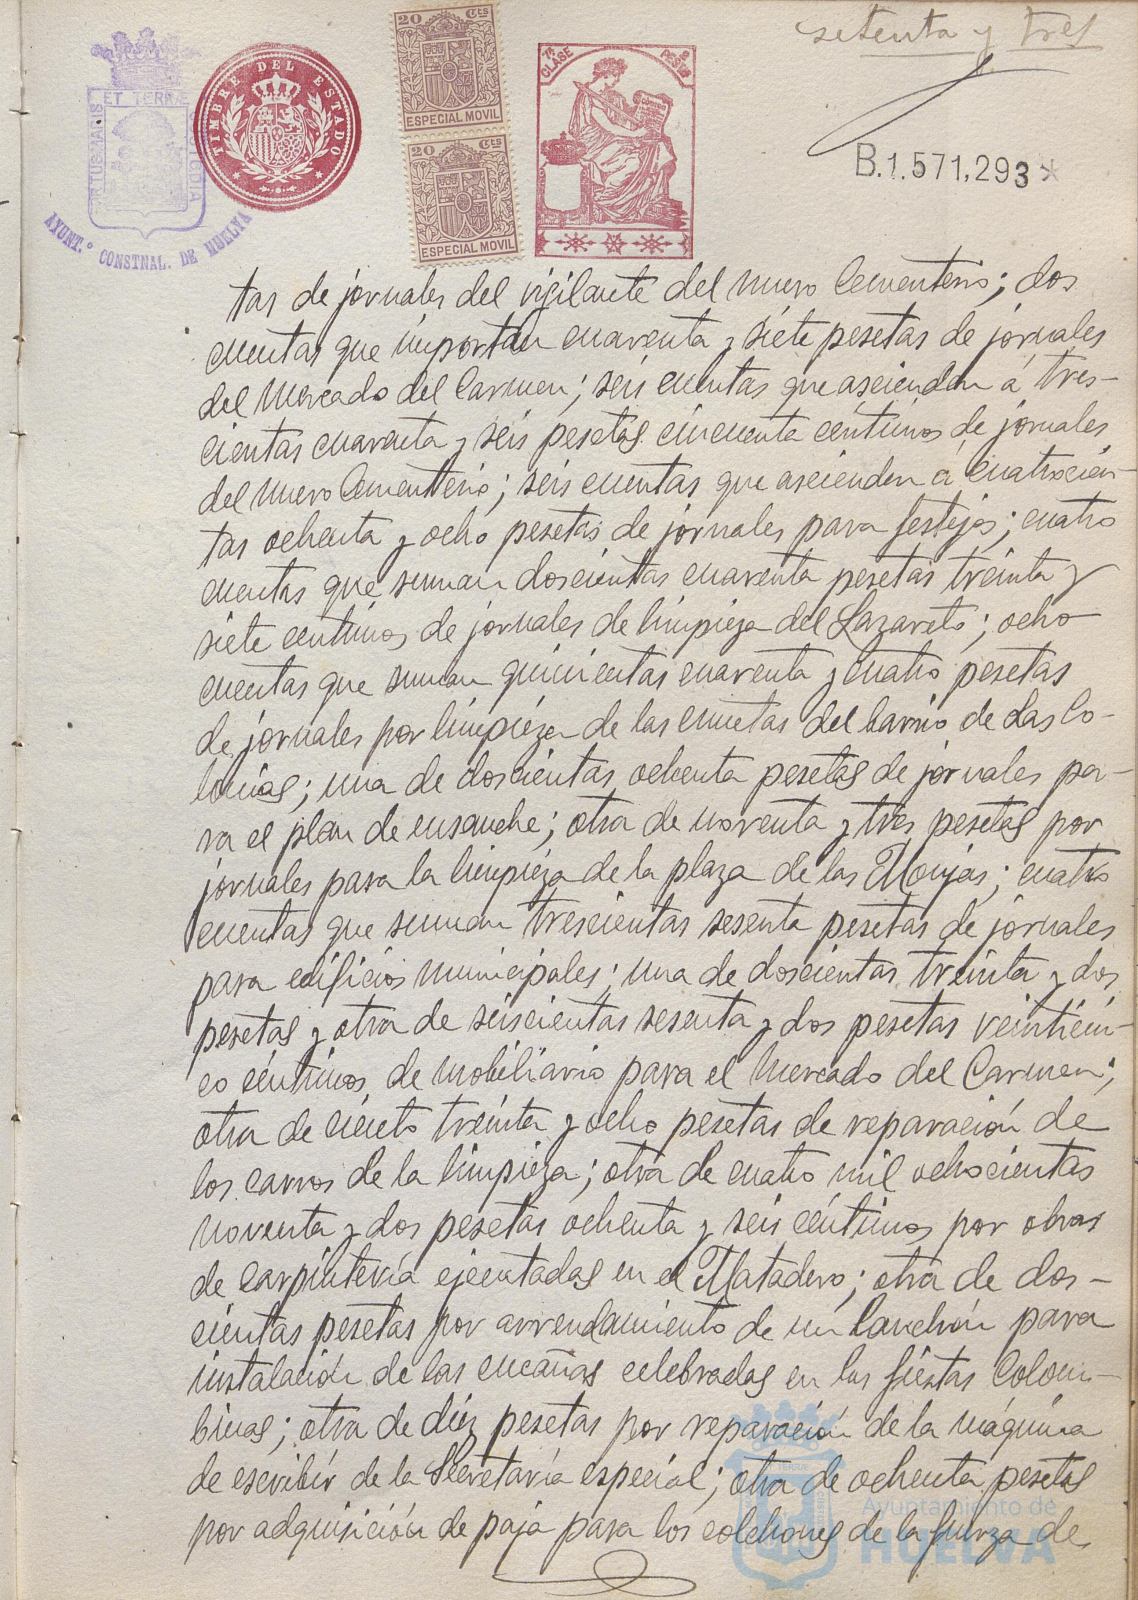 setenta y tres
PORTUS MARIS ET TERRÆ CUSTODIA
AYUNT.º CONSTNAL. DE HUELVA
TIMBRE DEL ESTADO
20 Cts
ESPECIAL MOVIL
20 Cts
ESPECIAL MOVIL
7ª CLASE
PESETAS
B.1.571,293
tas de jornales del vigilante del nuevo Cementerio; dos
cuentas que importan cuarenta y siete pesetas de jornales
del Mercado del Carmen; seis cuentas que ascienden á tres-
cientas cuarenta y seis pesetas cincuenta céntimos de jornales
del nuevo Cementerio; seis cuentas que ascienden á cuatrocien-
tas ochenta y ocho pesetas de jornales para festejos; cuatro
cuentas que suman doscientas cuarenta pesetas treinta y
siete centimos de jornales de limpieza del Lazareto; ocho
cuentas que suman quinientas cuarenta y cuatro pesetas
de jornales por limpieza de las cunetas del barrio de Las Co-
lonias; una de doscientas ochenta pesetas de jornales pa-
ra el plan de ensanche; otra de noventa y tres pesetas por
jornales para la limpieza de la plaza de las Monjas; cuatro
cuentas que suman trescientas sesenta pesetas de jornales
para edificios municipales; una de doscientas treinta y dos
pesetas y otra de seiscientas sesenta y dos pesetas veinticin-
co céntimos de mobiliario para el Mercado del Carmen;
otra de ciento treinta y ocho pesetas de reparación de
los carros de la limpieza; otra de cuatro mil ochocientas
noventa y dos pesetas ochenta y seis céntimos por obras
de carpintería ejecutadas en el Matadero; otra de dos-
cientas pesetas por arrendamiento de un lanchón para
instalación de las cucañas celebradas en las fiestas Colom-
binas; otra de diez pesetas por reparación de la máquina
de escribir de la Secretaría especial; otra de ochenta pesetas
por adquisición de paja para los colchones de la fuerza de
Ayuntamiento de
HUELVA